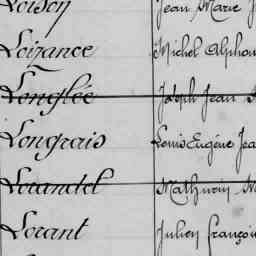 Loison Jean Marie
Loizance Michel Alphon
Longlée Joseph Jean
Longrais Louis Eugène Jea
Lorandel Mathurin M
Lorant Julien françoi